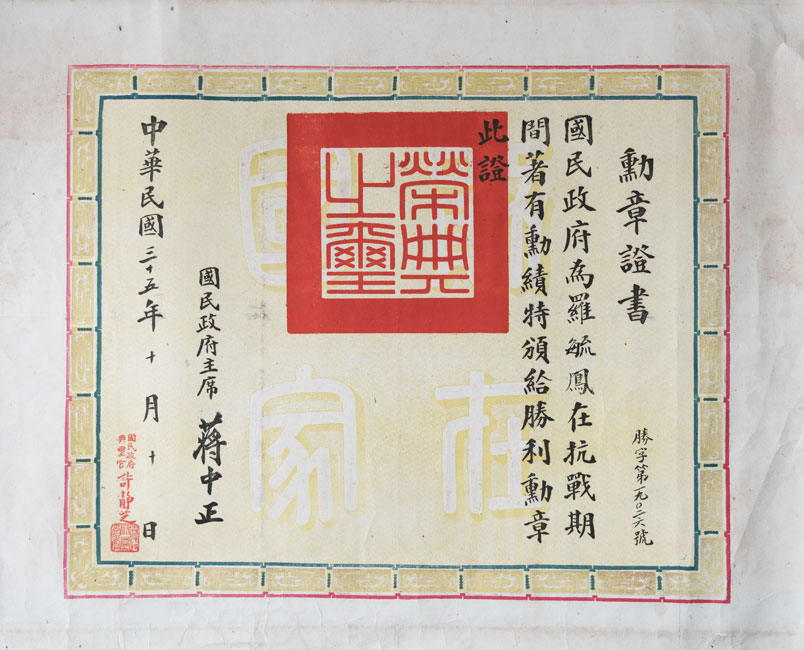 勳章證書
勝字第一九〇二六號
國民政府為羅毓鳳在抗戰期
間著有勳績特頒給勝利勳章
此證
榮典
之璽
功在
國家
國民政府主席 蔣中正
中華民國三十五年十月十日
國民政府
典璽官 許靜芝